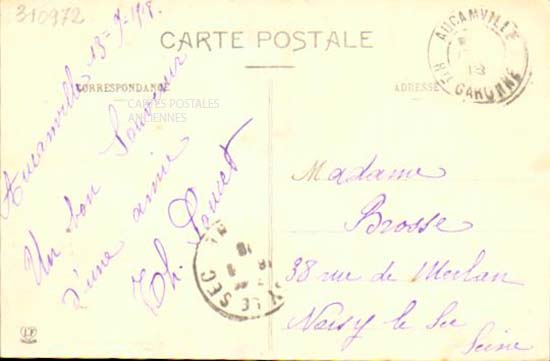 310972
CARTE POSTALE
CORRESPONDANCE
ADRESSE
CARTES POSTALES
ANCIENNES
AUCAMVILLE
18
Hte GARONNE
Aucamville 13-9-1918
Un bon Souvenir
d'une amie
Th.
Madame
Brosse
38 rue de Merlan
Noisy le Sec
Seine
LE SEC